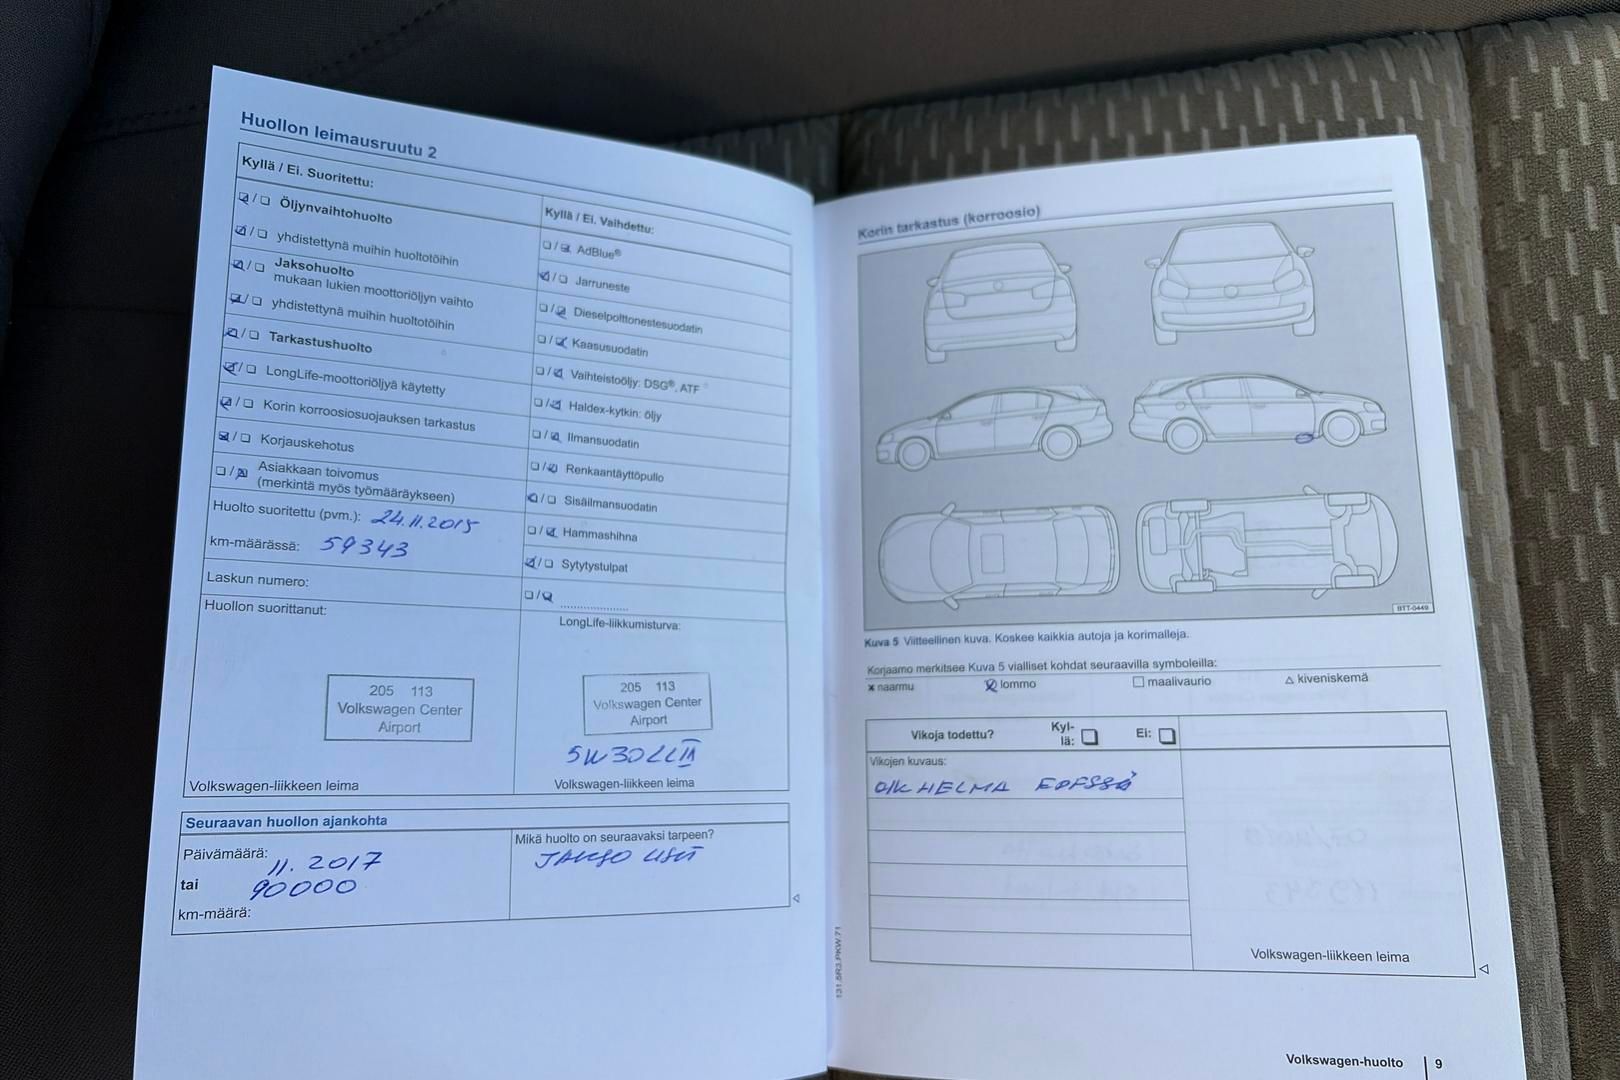 Huollon leimausruutu 2
Kyllä / Ei. Suoritettu:
Öljynvaihtohuolto
yhdistettynä muihin huoltotöihin
Jaksohuolto
mukaan lukien moottoriöljyn vaihto
yhdistettynä muihin huoltotöihin
Tarkastushuolto
LongLife-moottoriöljyä käytetty
Korin korroosiosuojauksen tarkastus
Korjauskehotus
Asiakkaan toivomus
(merkintä myös työmääräykseen)
Huolto suoritettu (pvm.): 24.11.2015
km-määrässä: 59343
Laskun numero:
Huollon suorittanut:
205 113
Volkswagen Center
Airport
Volkswagen-liikkeen leima
Kyllä / Ei. Vaihdettu:
AdBlue®
Jarruneste
Dieselpolttonestesuodatin
Kaasusuodatin
Vaihteistoöljy: DSG®, ATF
Haldex-kytkin: öljy
Ilmansuodatin
Renkaantäyttöpullo
Sisäilmansuodatin
Hammashihna
Sytytystulpat
LongLife-liikkumisturva:
205 113
Volkswagen Center
Airport
5W30LLIII
Volkswagen-liikkeen leima
Seuraavan huollon ajankohta
Päivämäärä: 11. 2017
tai 90000
km-määrä:
Mikä huolto on seuraavaksi tarpeen?
JAKSO
Korin tarkastus (korroosio)
BTT-0449
Kuva 5 Viitteellinen kuva. Koskee kaikkia autoja ja korimalleja.
Korjaamo merkitsee Kuva 5 vialliset kohdat seuraavilla symboleilla:
× naarmu lommo □ maalivaurio △ kiveniskemä
Vikoja todettu? Kyl-
lä: □ Ei: □
Vikojen kuvaus:
OIK HELMA EDESSÄ
Volkswagen-liikkeen leima
131.5R3.PKW.71
Volkswagen-huolto | 9